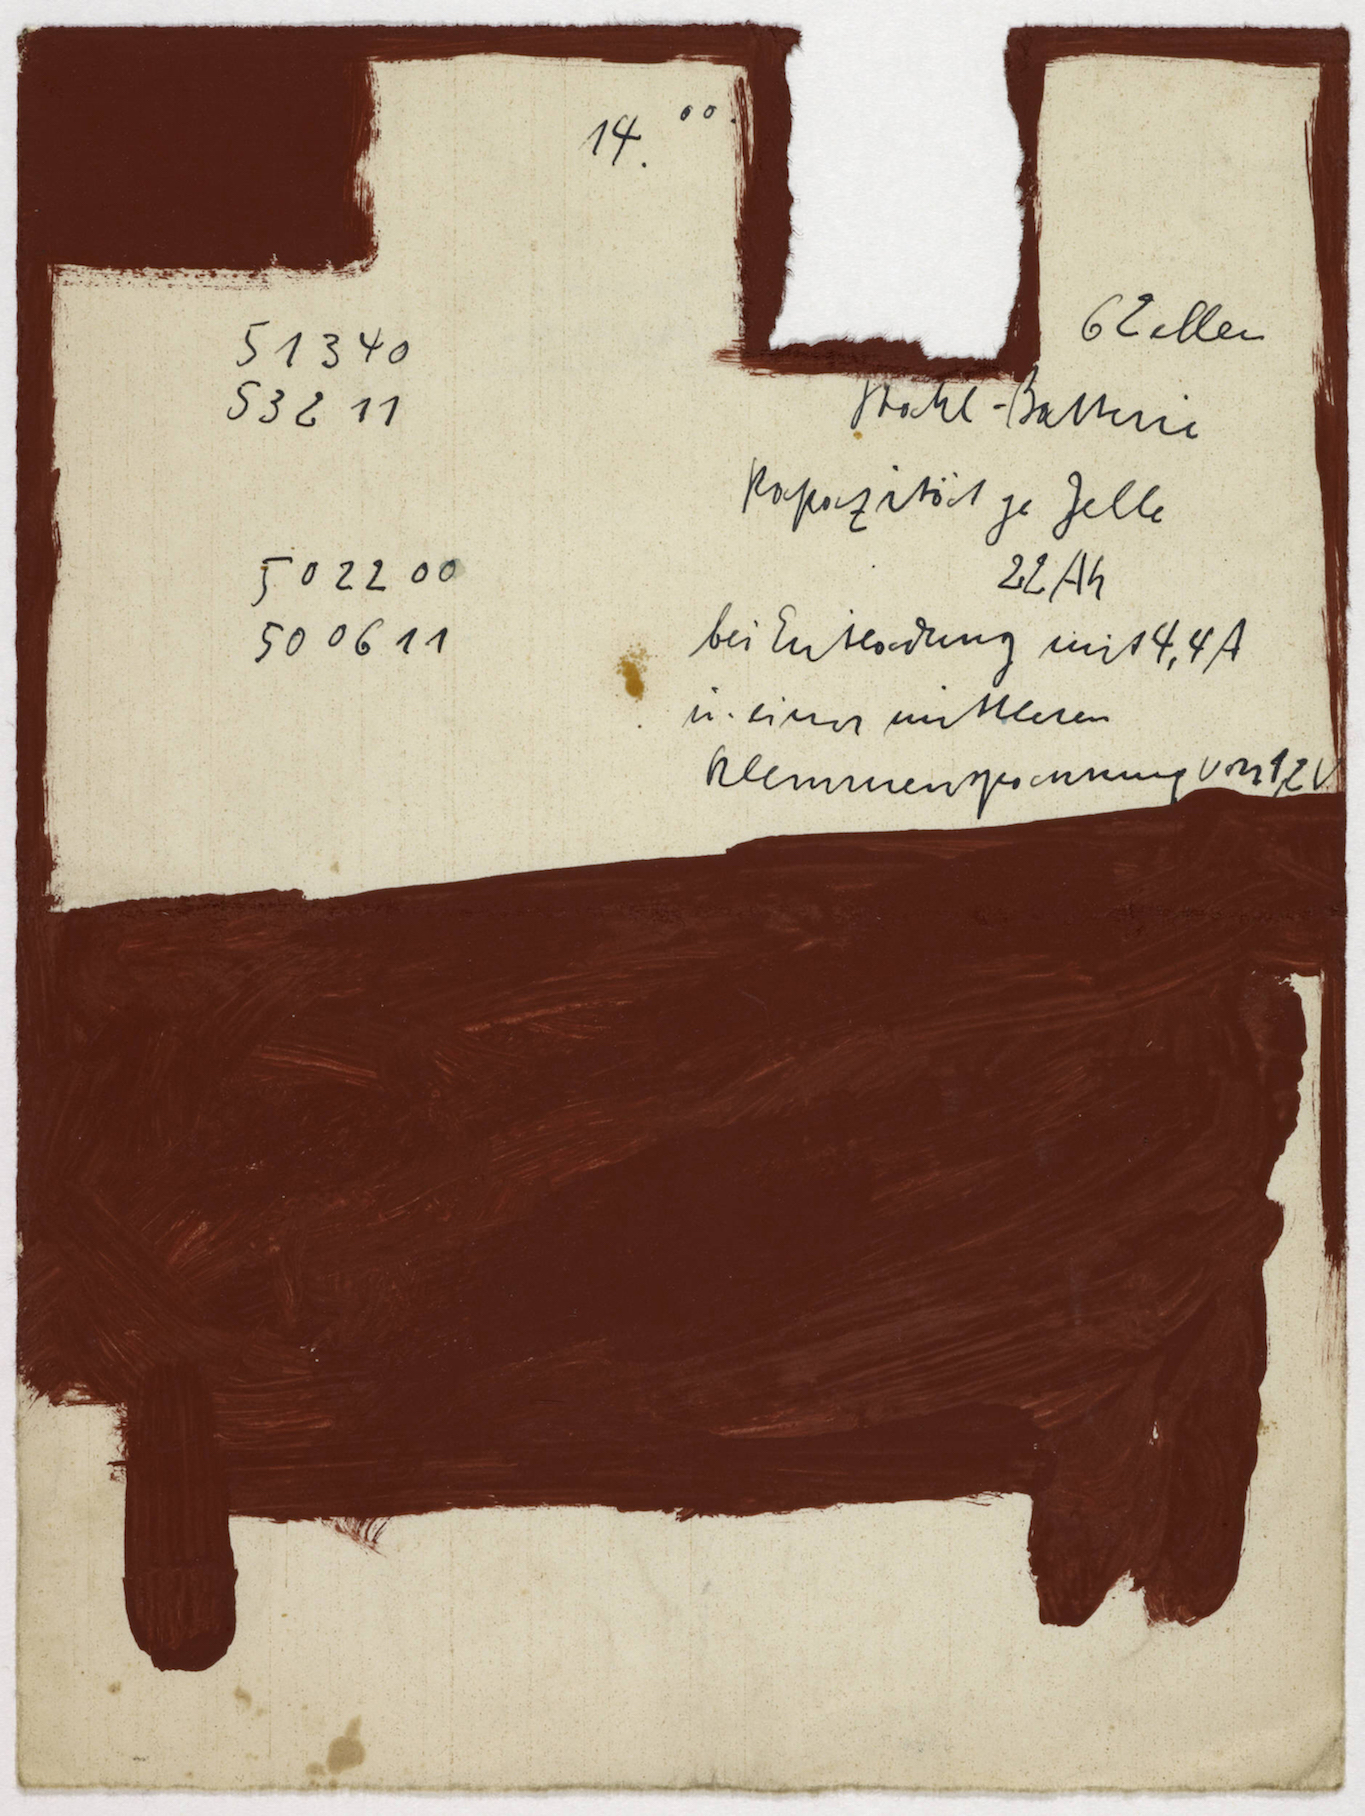 14.00.
51340
53211
502200
500611
6 Zellen
Stahl-Batterie
Kapazität je Zelle
22 Ah
bei Entladung mit 4,4 A
u. einer mittleren
Klemmenspannung von 1,2 V